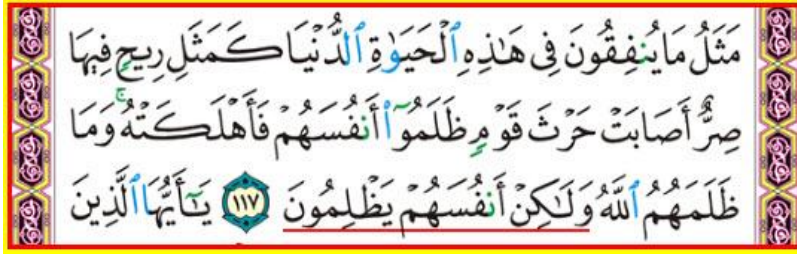 مَثَلُ مَا يُنفِقُونَ فِى هَٰذِهِ ٱلْحَيَوٰةِ ٱلدُّنْيَا كَمَثَلِ رِيحٍ فِيهَا
صِرٌّ أَصَابَتْ حَرْثَ قَوْمٍ ظَلَمُوٓا۟ أَنفُسَهُمْ فَأَهْلَكَتْهُ ۚ وَمَا
ظَلَمَهُمُ ٱللَّهُ وَلَٰكِنْ أَنفُسَهُمْ يَظْلِمُونَ ١١٧ يَٰٓأَيُّهَا ٱلَّذِينَ